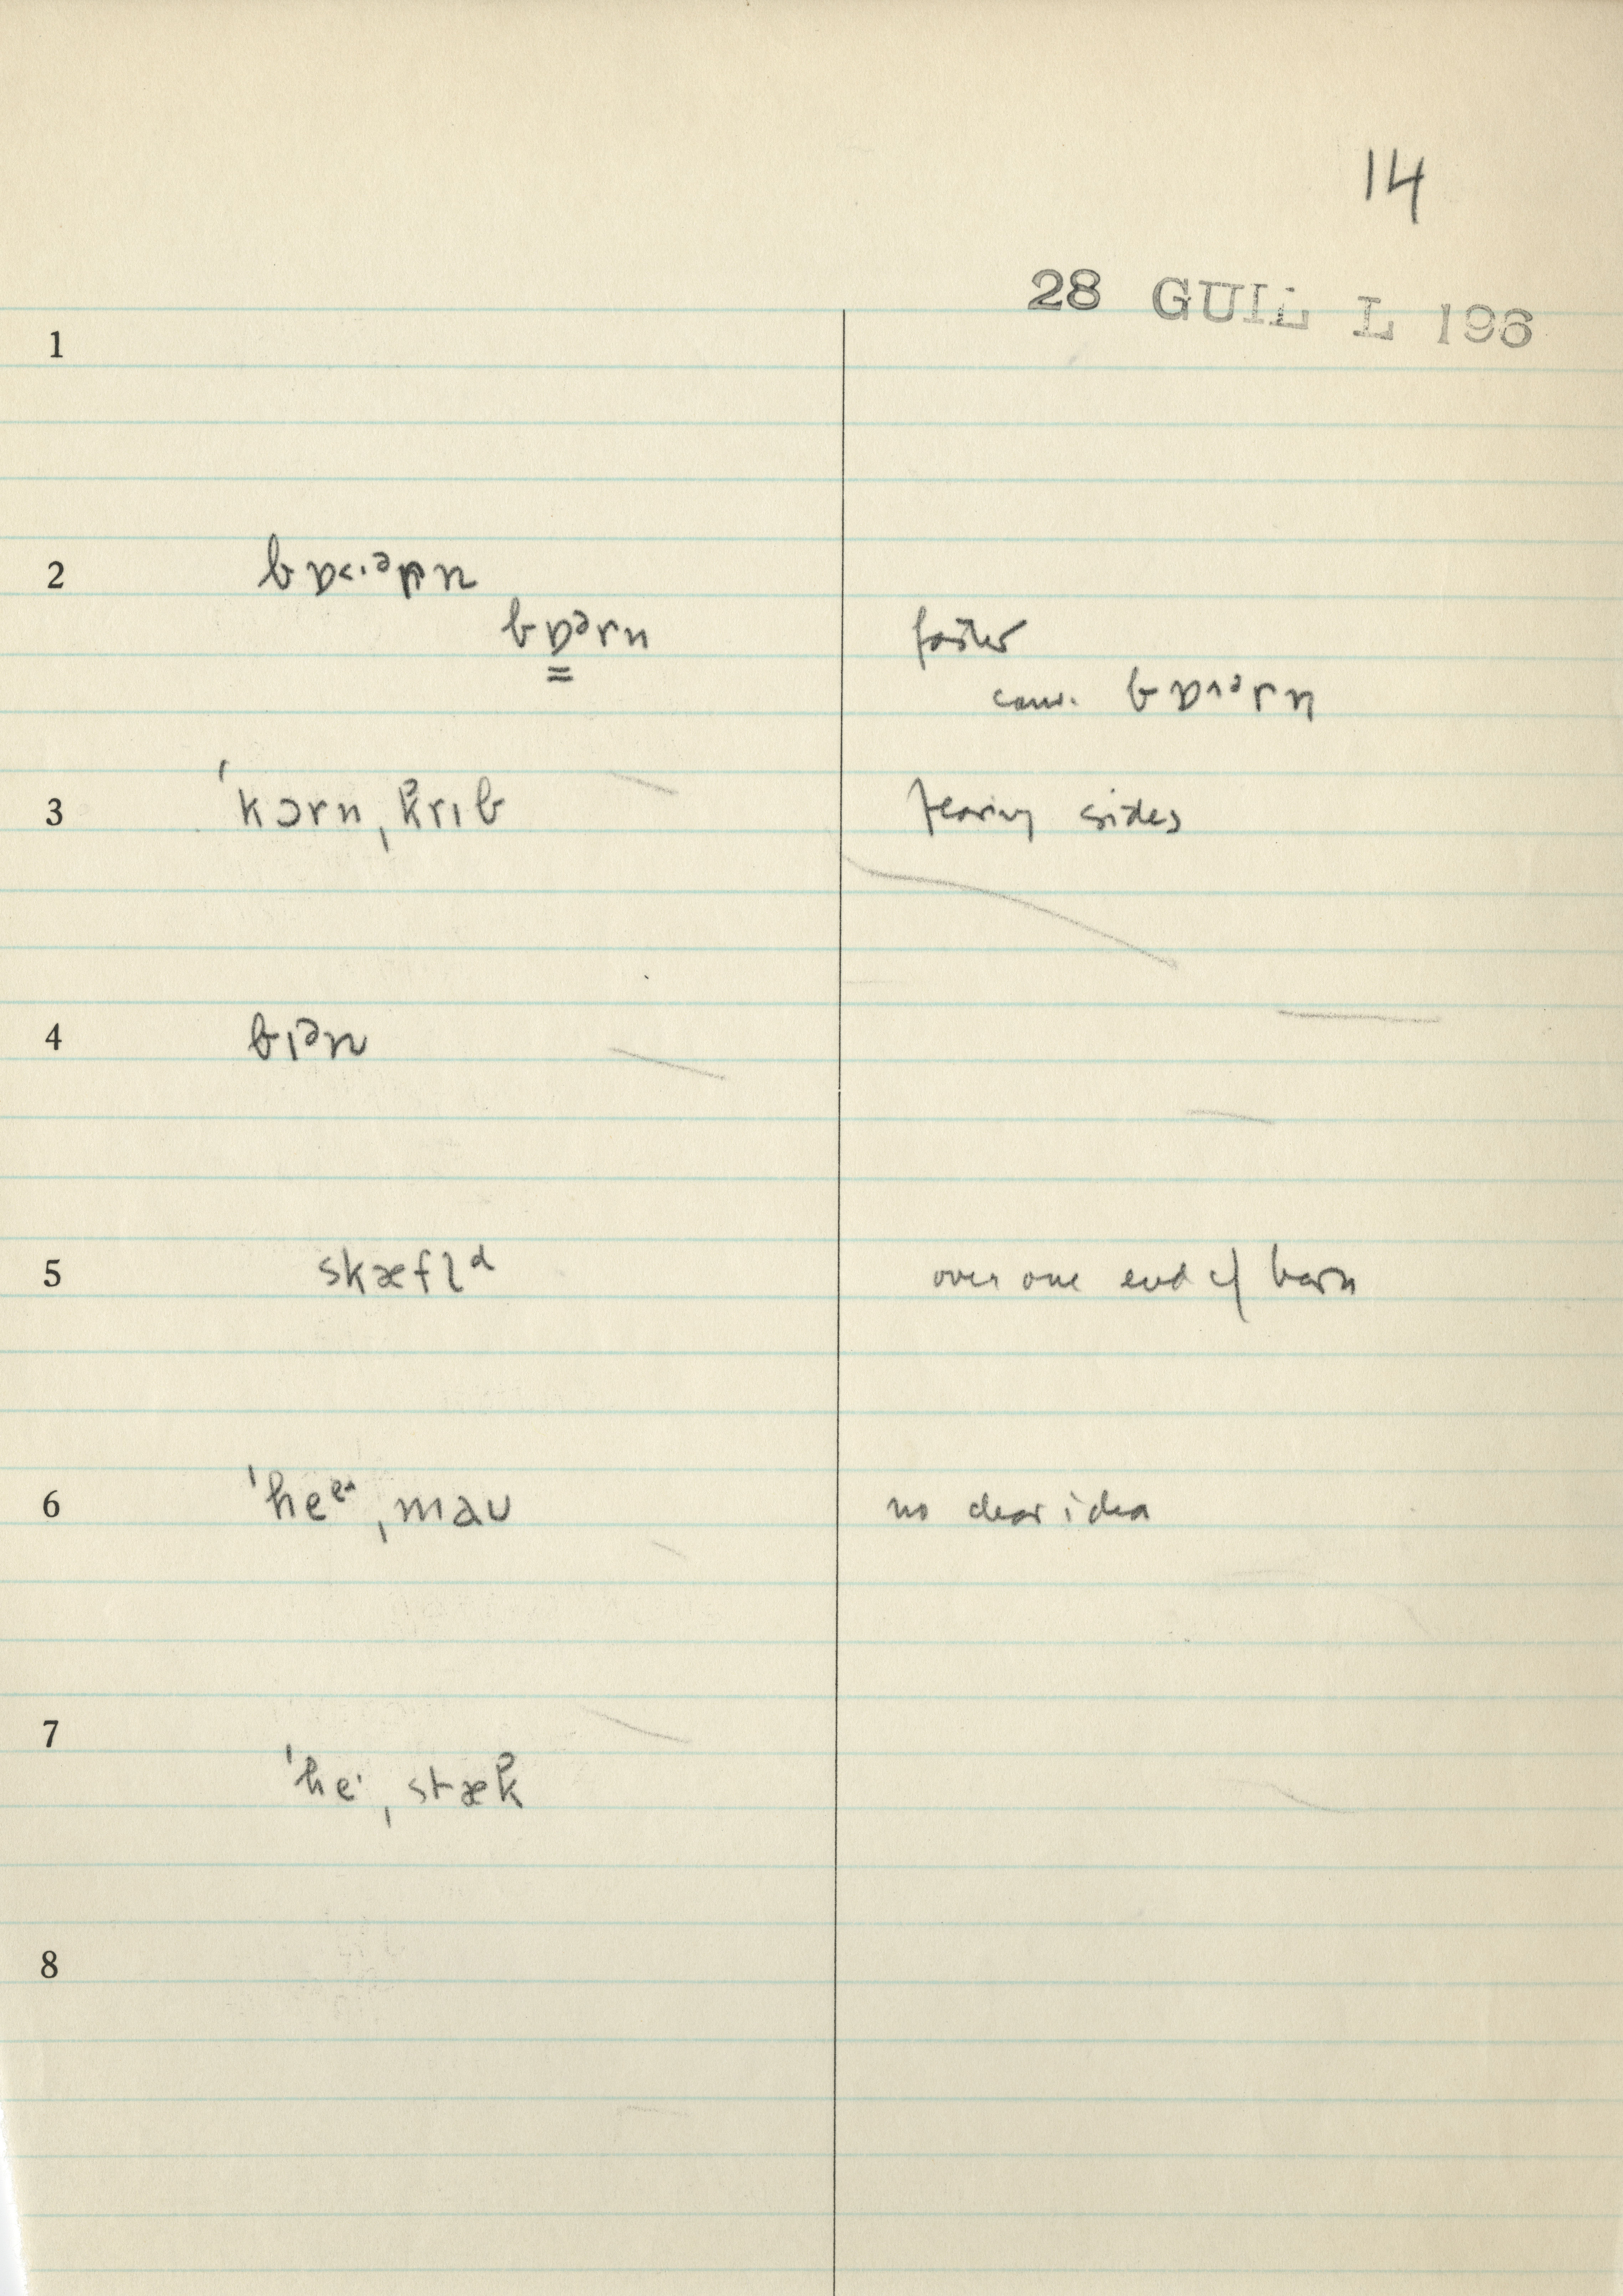 14
28 GUIL L 196
1
2 bɒ<·ᵊrn
bɒᵊrn faster
conv. bɒ^ᵊrn
3 ˈkɔrn ˌkrɪb sides
4 bɪᵊn
5 skæfl̩ᵈ over one end of barn
6 ˈheᵉ^ ˌmaʊ no clear idea
7 ˈhe· ˌstæk
8